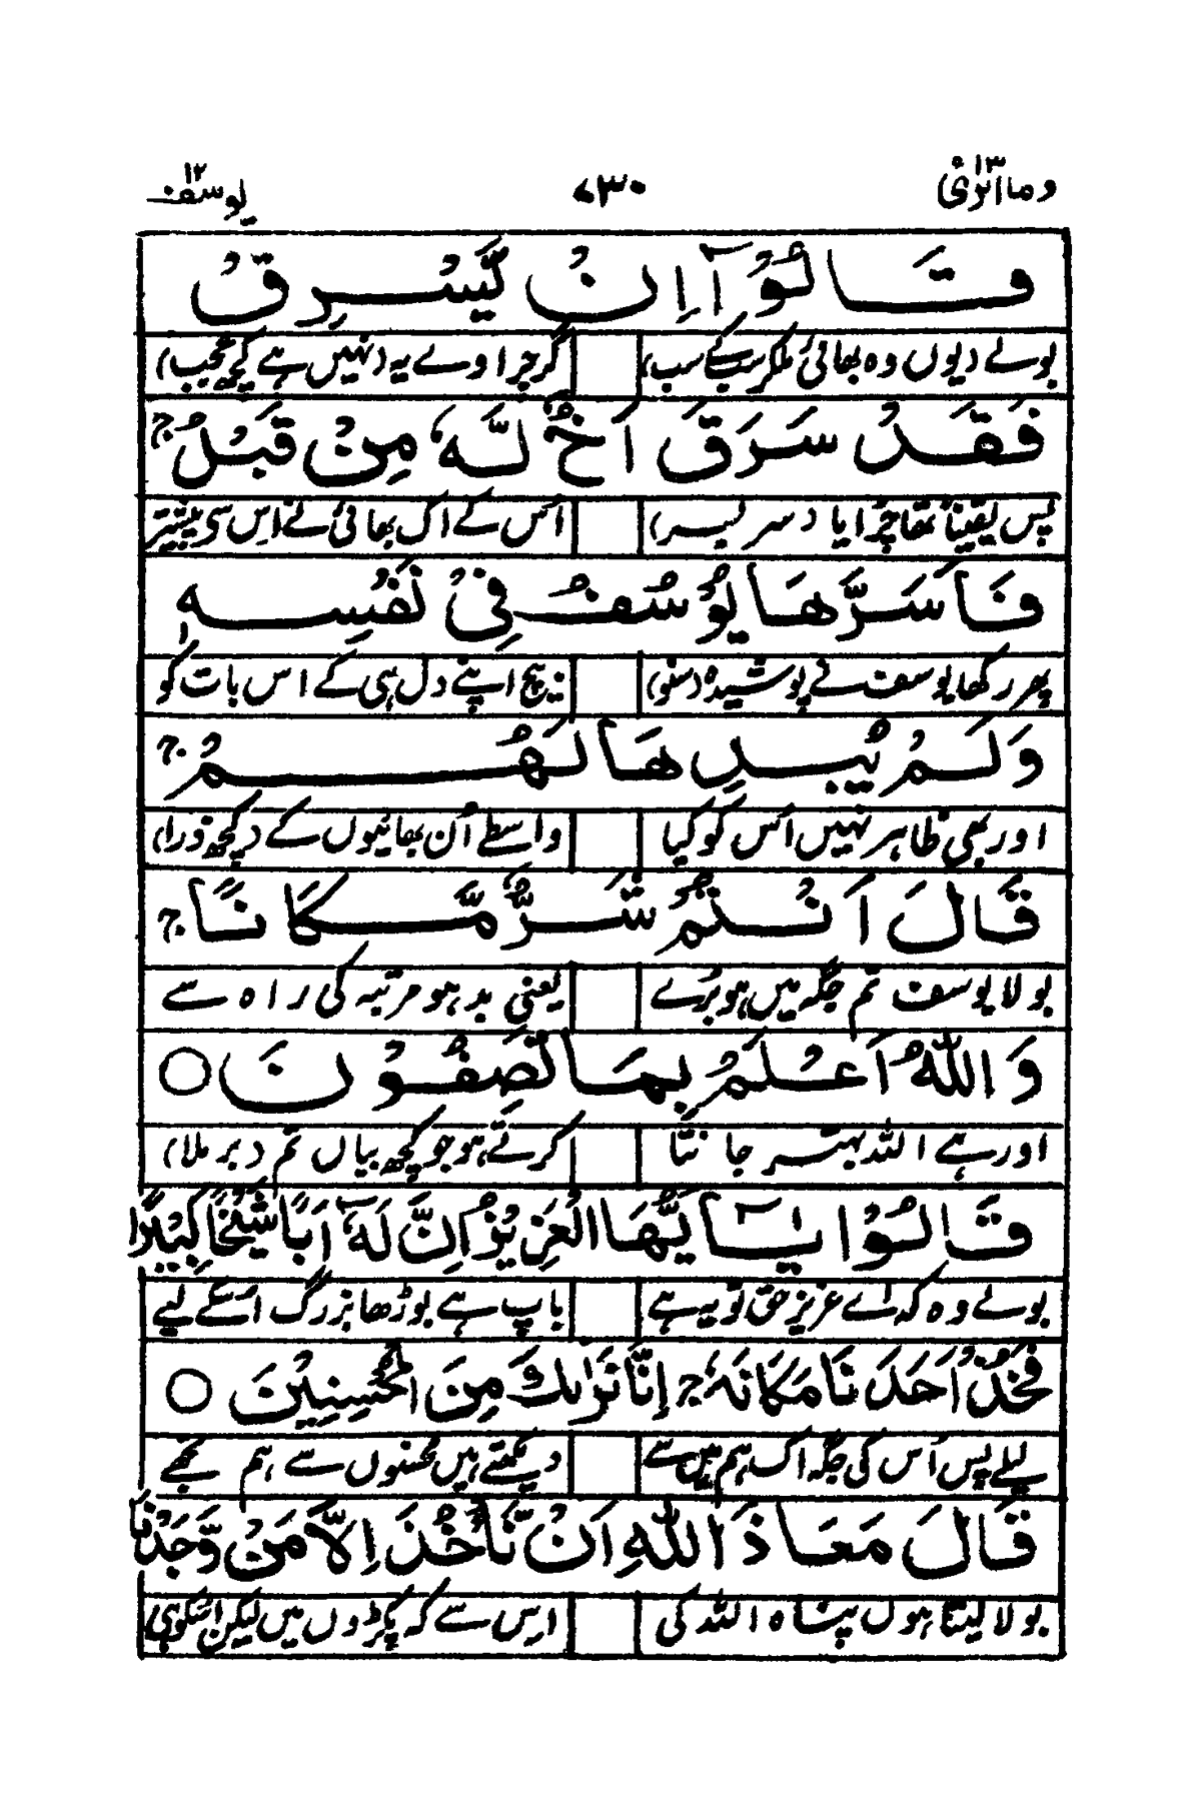 وما ابرئ ۱۳ ۷۳۰ یوسف ۱۲
قَالُوْۤا اِنْ يَّسْرِقْ
بولے (یوں وہ بھائی ملکر سب کے سب) گر چراوے یہ (نہیں ہے کچھ عجب)
فَقَدْ سَرَقَ اَخٌ لَّهٗ مِنْ قَبْلُ ج
پس یقیناً تھا چرایا (سر بسر) اُس کے اک بھائی نے اِس سی پیشتر
فَاَسَرَّهَا يُوْسُفُ فِيْ نَفْسِهٖ
پھر رکھا یوسف نے پوشیدہ (سنو) بیچ اپنے دل ہی کے اس بات کو
وَلَمْ يُبْدِهَا لَهُمْ ج
اور بھی ظاہر نہیں اُس کو کیا واسطے اُن بھائیوں کے (دیکھ ذرا)
قَالَ اَنْتُمْ شَرٌّ مَّكَانًا ج
بولا یوسف تم جگہ میں ہو بُرے یعنی بد ہو مرتبہ کی راہ سے
وَاللّٰهُ اَعْلَمُ بِمَا تَصِفُوْنَ ○
اور ہے اللہ بہتر جانتا کرتے ہو جو کچھ بیاں تم (برملا)
قَالُوْا يٰۤاَيُّهَا الْعَزِيْزُ اِنَّ لَهٗۤ اَبًا شَيْخًا كَبِيْرًا
بولے وہ کہ اے عزیز حق تو یہ ہے باپ ہے بوڑھا بزرگ اسکے لیے
فَخُذْ اَحَدَنَا مَكَانَهٗ ج اِنَّا نَرٰىكَ مِنَ الْمُحْسِنِيْنَ ○
لیلے پس اُس کی جگہ اک ہم میں سے دیکھتے ہیں محسنوں سے ہم تجھے
قَالَ مَعَاذَ اللّٰهِ اَنْ نَّاْخُذَ اِلَّا مَنْ وَّجَدْنَا
بولا لیتا ہوں پناہ اللہ کی اِس سے کہ پکڑوں میں لیکن اسکو ہی